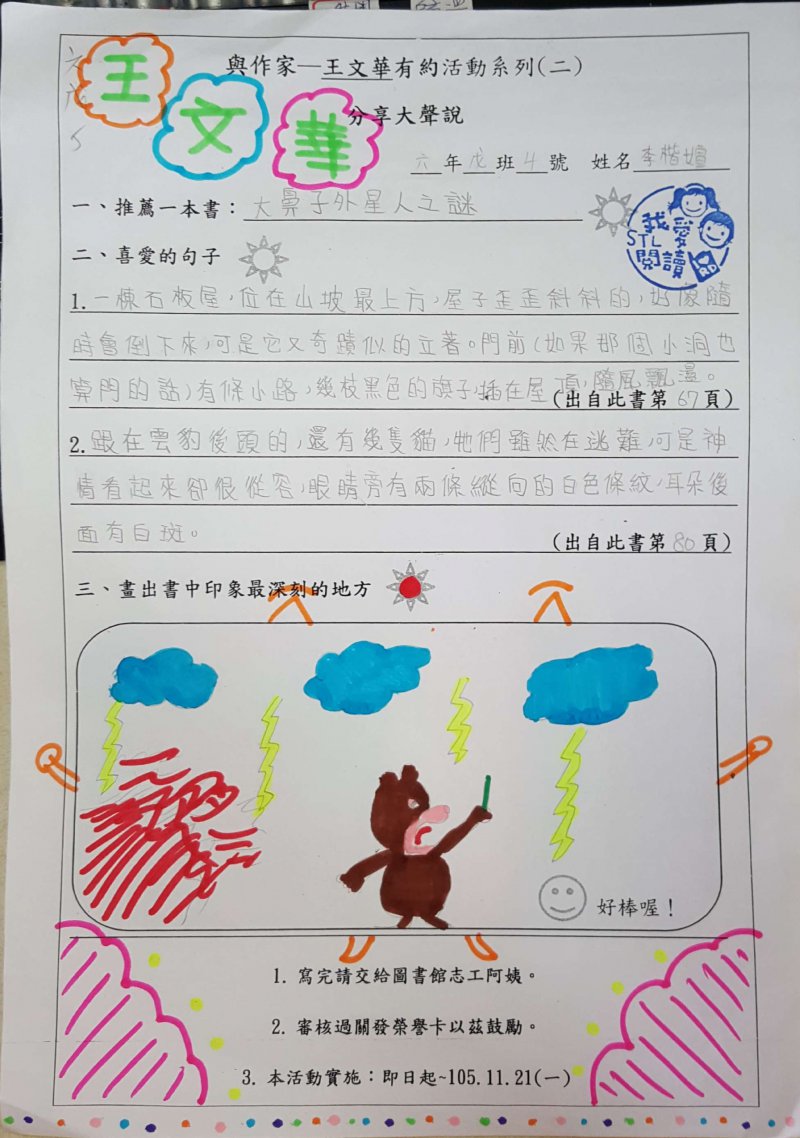 王文華
與作家—王文華有約活動系列(二)
分享大聲說
六年戊班4號 姓名李楷嬗
一、推薦一本書：大鼻子外星人之謎
我愛
STL
閱讀
二、喜愛的句子
1.一棟石板屋，位在山坡最上方，屋子歪歪斜斜的，好像隨
時會倒下來，可是它又奇蹟似的立著。門前(如果那個小洞也
算門的話)有條小路，幾枝黑色的旗子，插在屋頂，隨風飄盪。
(出自此書第67頁)
2.跟在雲豹後頭的，還有幾隻貓，牠們雖然在逃難，可是神
情看起來卻很從容，眼睛旁有兩條縱向的白色條紋，耳朵後
面有白斑。
(出自此書第80頁)
三、畫出書中印象最深刻的地方
好棒喔！
1. 寫完請交給圖書館志工阿姨。
2. 審核過關發榮譽卡以茲鼓勵。
3. 本活動實施：即日起~105.11.21(一)